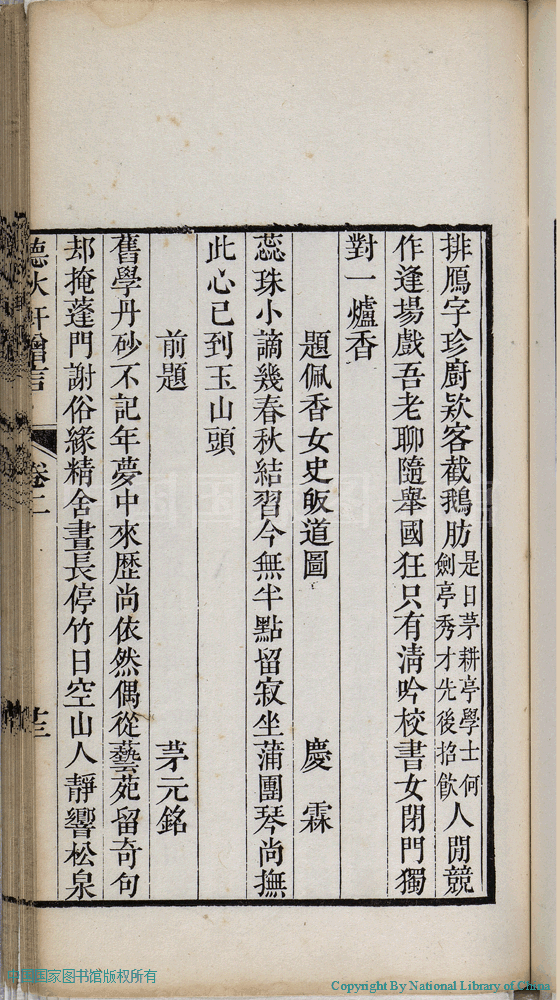 排鴈字珍廚欵客截鵝肪是日茅耕亭學士何劍亭秀才先後招飲人閒競
作逢場戲吾老聊隨舉國狂只有淸吟校書女閉門獨
對一爐香
題佩香女史皈道圖 慶霖
蕊珠小謫幾春秋結習今無半點留寂坐蒲團琴尚撫
此心已到玉山頭
前題 茅元銘
舊學丹砂不記年夢中來歷尚依然偶從藝苑留奇句
却掩蓬門謝俗緣精舍晝長停竹日空山人靜響松泉
聽秋軒贈言 卷二 十三
中国国家图书馆
©中国国家图书馆版权所有
Copyright By National Library of China